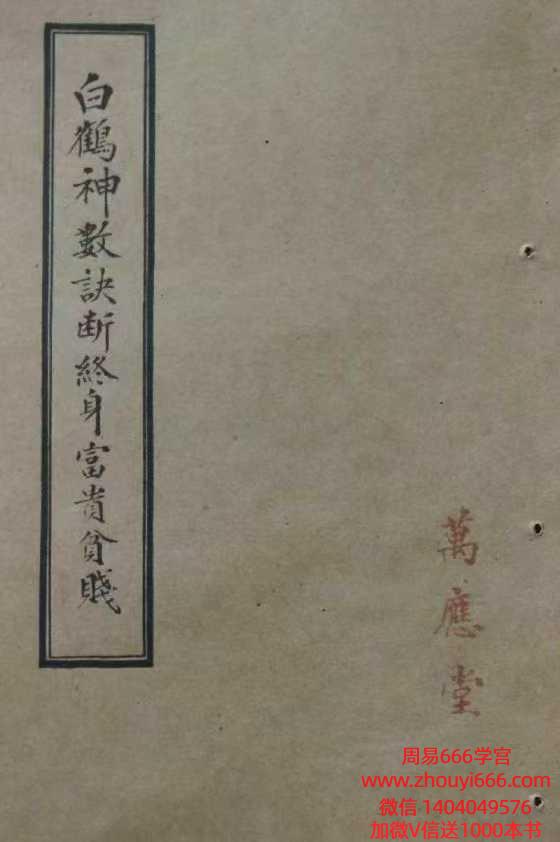 白鶴神數訣断終身富貴貧賤
萬應堂
周易666学宫
www.zhouyi666.com
微信 1404049576
加微V信送1000本书